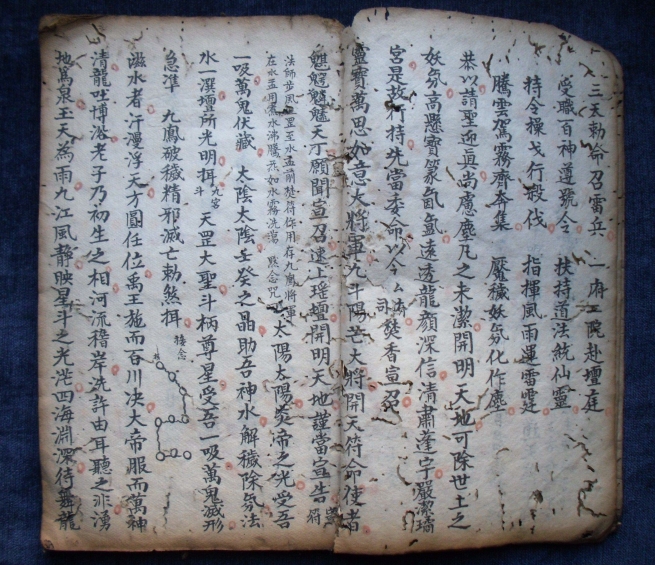 三天勅命召雷兵　一府二院赴壇庭
受職百神遵號令　扶持道法統仙靈
持令操戈行殺伐　指揮風雨運雷霆
騰雲駕霧齊奔集　厭穢妖氛化作塵
恭以請聖迎真尚慮塵凡之未潔開明天地可除世土之
妖氛高懸寶篆氤氳遠透龍顔深信清肅蓬宇嚴潔
宮是故行持先當委命以今焚香宣召
靈寶萬思如意大將軍九斗陽芒大將開天符命使者
魑魅天丁願聞宣召速上瑤壇開明天地謹當宣告符
法師步風罡至水盂前焚符作用存九鳳將軍
在水盂用水沸騰如水霧洗蕩默念咒
太陽太陽炎帝之光受吾
一吸萬鬼伏藏　太陰太陰壬癸之晶助吾神水解穢除氛法
水一潠壇所光明揖九宮斗天罡大聖斗柄尊星受吾一吸萬鬼滅形
急準　九鳳破穢精邪滅亡勅煞揖接念
滋水者汗漫浮天方圓任位禹王施而百川決大帝服而萬神
清龍吠博浴老子乃初生之相河流稽岸洗許由耳聽之非湧
地萬泉玉天為雨九江風靜映星斗之光茫四海淵深待龍